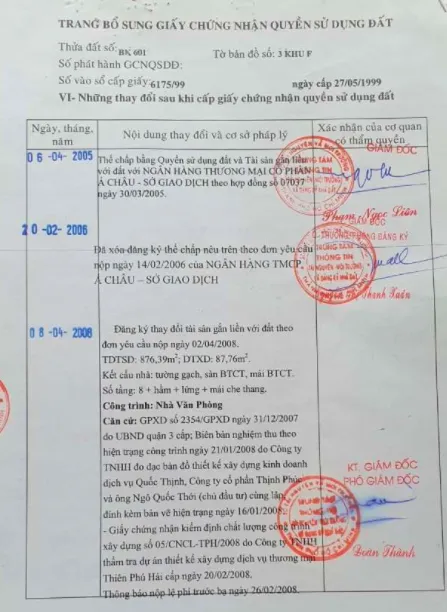 TRANG BỔ SUNG GIẤY CHỨNG NHẬN QUYỀN SỬ DỤNG ĐẤT
Thửa đất số: BK 601 Tờ bản đồ số: 3 KHU F
Số phát hành GCNQSDĐ:
Số vào sổ cấp giấy: 6175/99 ngày cấp 27/05/1999
VI- Những thay đổi sau khi cấp giấy chứng nhận quyền sử dụng đất
Ngày, tháng, năm
Nội dung thay đổi và cơ sở pháp lý
Xác nhận của cơ quan có thẩm quyền
06-04-2005
Thế chấp bằng Quyền sử dụng đất và Tài sản gắn liền
với đất với NGÂN HÀNG THƯƠNG MẠI CỔ PHẦN
Á CHÂU - SỞ GIAO DỊCH theo hợp đồng số 07037
ngày 30/03/2005.
GIÁM ĐỐC
Phạm Ngọc Liên
20-02-2006
Đã xóa đăng ký thế chấp nêu trên theo đơn yêu cầu
nộp ngày 14/02/2006 của NGÂN HÀNG TMCP
Á CHÂU – SỞ GIAO DỊCH
GIÁM ĐỐC
TRƯỞNG PHÒNG ĐĂNG KÝ
TRUNG TÂM
THÔNG TIN
Thanh Xuân
08-04-2008
Đăng ký thay đổi tài sản gắn liền với đất theo
đơn yêu cầu nộp ngày 02/04/2008.
TDTSD: 876,39m²; DTXD: 87,76m².
Kết cấu nhà: tường gạch, sàn BTCT, mái BTCT.
Số tầng: 8 + hầm + lửng + mái che thang.
Công trình: Nhà Văn Phòng
Căn cứ: GPXD số 2354/GPXD ngày 31/12/2007
do UBND quận 3 cấp; Biên bản nghiệm thu theo
hiện trạng công trình ngày 21/01/2008 do Công ty
TNHH đo đạc bản đồ thiết kế xây dựng kinh doanh
dịch vụ Quốc Thịnh, Công ty cổ phần Thịnh Phúc
và ông Ngô Quốc Thới (chủ đầu tư) cùng lập,
đính kèm bản vẽ hiện trạng ngày 16/01/2008.
- Giấy chứng nhận kiểm định chất lượng công trình
xây dựng số 05/CNCL-TPH/2008 do Công ty TNHH
thẩm tra dự án thiết kế xây dựng dịch vụ thương mại
Thiên Phú Hải cấp ngày 20/02/2008.
Thông báo nộp lệ phí trước bạ ngày 26/02/2008.
KT. GIÁM ĐỐC
PHÓ GIÁM ĐỐC
Đoàn Thành